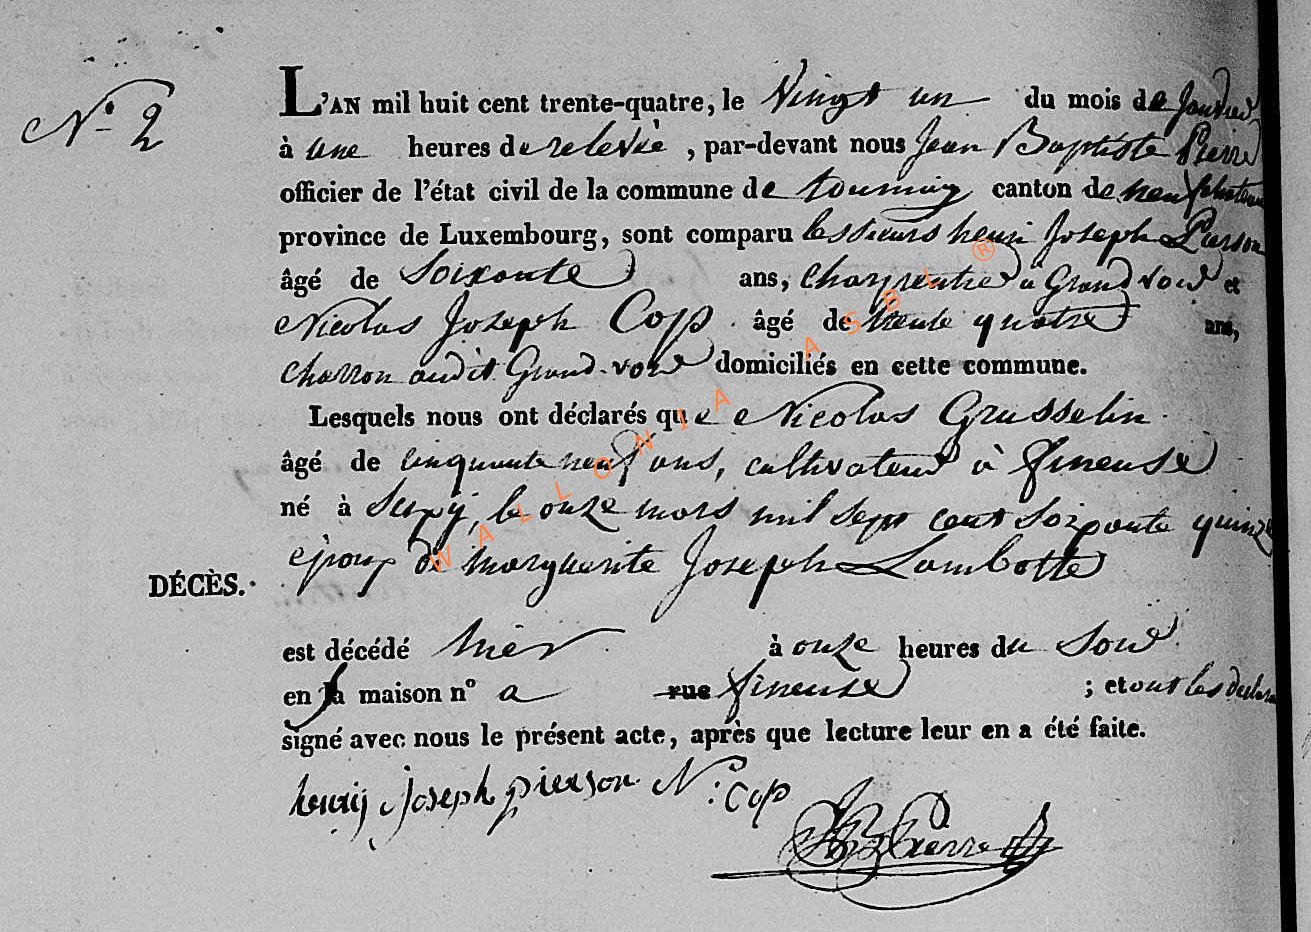 N.o 2
L'AN mil huit cent trente-quatre, le vingt un du mois de Janvier
à une heures de relevée, par-devant nous Jean Baptiste Pierre
officier de l'état civil de la commune de tournay canton de neufchateau
province de Luxembourg, sont comparu les sieurs henri Joseph Pierson
âgé de Soixante ans, charpentier à Grandvoir et
Nicolas Joseph Cop âgé de trente quatre ans,
charron audit Grand-voir domiciliés en cette commune.
Lesquels nous ont déclarés que Nicolas Grusselin
âgé de cinquante neuf ans, cultivateur à fineuse
né à Supy, le onze mars mil sept cent soixante quinze
époux de marguerite Joseph Lambotte
DÉCÈS.
est décédé hier à onze heures du Soir
en sa maison n° a rue fineuse ; et ont les
signé avec nous le présent acte, après que lecture leur en a été faite.
henry joseph pierson N. Cop
JB Pierre
WALLONIA ASBL ®